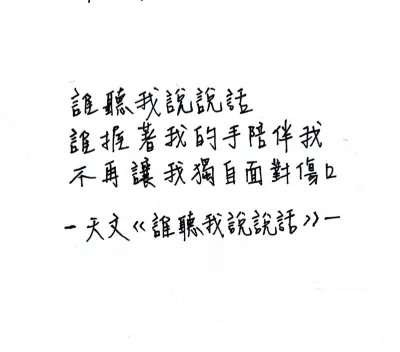 誰聽我說說話
誰握著我的手陪伴我
不再讓我獨自面對傷口
-天文《誰聽我說說話》-